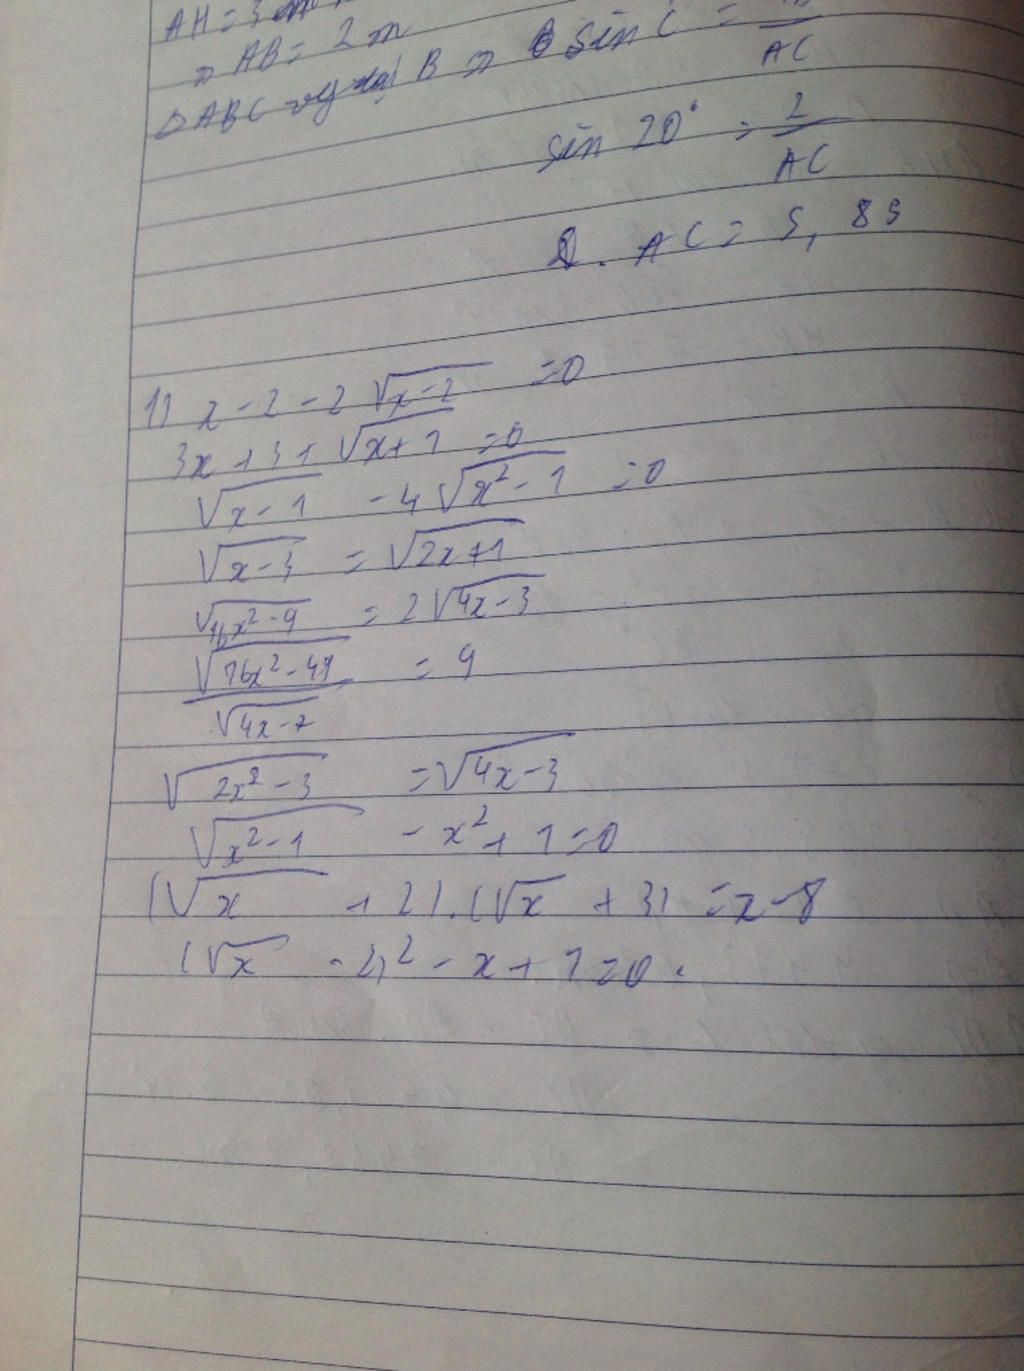 AH = 3
⇒ AB = 2 m
△ABC tại B ⇒ sin C = AB/AC
sin 20° = 2/AC
AC = 5,85
1) x - 2 - 2√(x-2) = 0
3x + 3 + √(x+1) = 0
√(x-1) - 4√(x²-1) = 0
√(x-3) = √(2x+1)
√(16x²-9) = 2√(4x-3)
√(16x²-49)/√(4x-7) = 9
√(2x²-3) = √(4x-3)
√(x²-1) - x² + 1 = 0
(√x + 2).(√x + 3) = x - 8
(√x - 2)² - x + 1 = 0.